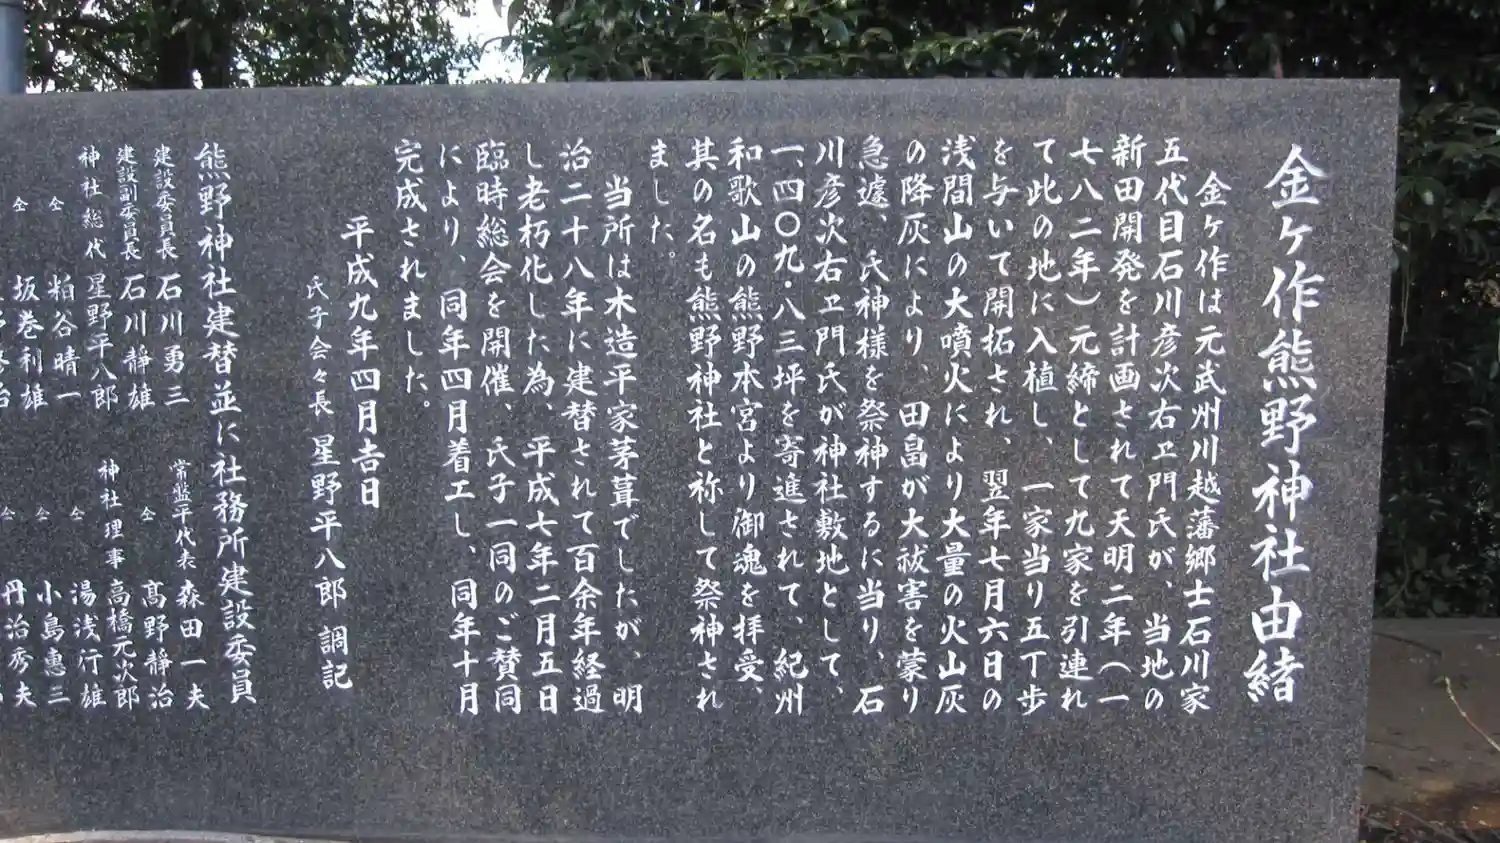 金ヶ作熊野神社由緒
金ヶ作は元武州川越藩郷士石川家
五代目石川彦次右ヱ門氏が、当地の
新田開発を計画されて天明二年（一
七八二年）元締として九家を引連れ
て此の地に入植し、一家当り五丁歩
を与いて開拓され、翌年七月六日の
浅間山の大噴火により大量の火山灰
の降灰により、田畠が大祓害を蒙り
急遽、氏神様を祭神するに当り、石
川彦次右ヱ門氏が神社敷地として、
一、四〇九・八三坪を寄進されて、紀州
和歌山の熊野本宮より御魂を拝受、
其の名も熊野神社と祢して祭神され
ました。
当所は木造平家茅葺でしたが、明
治二十八年に建替されて百余年経過
し老朽化した為、平成七年二月五日
臨時総会を開催、氏子一同のご賛同
により、同年四月着工し、同年十月
完成されました。
平成九年四月吉日
氏子会々長 星野平八郎 調記
熊野神社建替並に社務所建設委員
建設委員長 石川勇三
常盤平代表 森田一夫
建設副委員長 石川靜雄
仝 髙野靜治
神社総代 星野平八郎
神社理事 高橋元次郎
仝 粕谷晴一
仝 湯浅行雄
仝 坂巻利雄
仝 小島惠三
仝 丹治秀夫